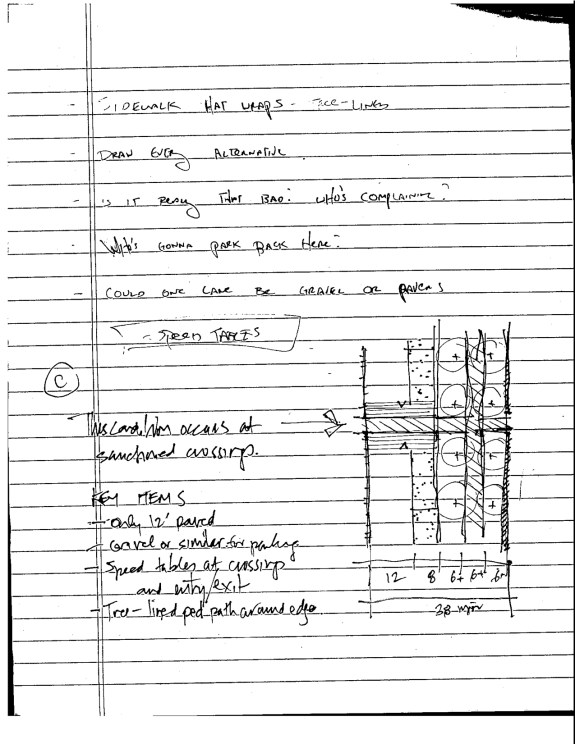 - SIDEWALK THAT WRAPS - TREE-LINED
- DRAW EVERY ALTERNATIVE
- IS IT REALLY THAT BAD? WHO'S COMPLAINING?
- WHO'S GONNA PARK BACK HERE?
- COULD ONE LANE BE GRAVEL OR PAVERS
- SPEED TABLES
C
This condition occurs at
sanctioned crossings.
KEY ITEMS
- only 12' paved
- Gravel or similar for parking
- Speed tables at crossings
and entry/exit
- Tree-lined ped path around edge.
12 8 6+ 6+ 6+
38 min